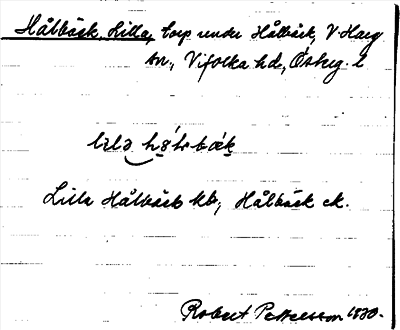 Hålbäck, Lilla, torp under Hålbäck, V. Harg
sn., Vifolka hd, Östерg. l
lilə hǫ́lsbæk
Lilla Hålbäck kb; Hålbäck ek.
Robert Pettersson 1930.